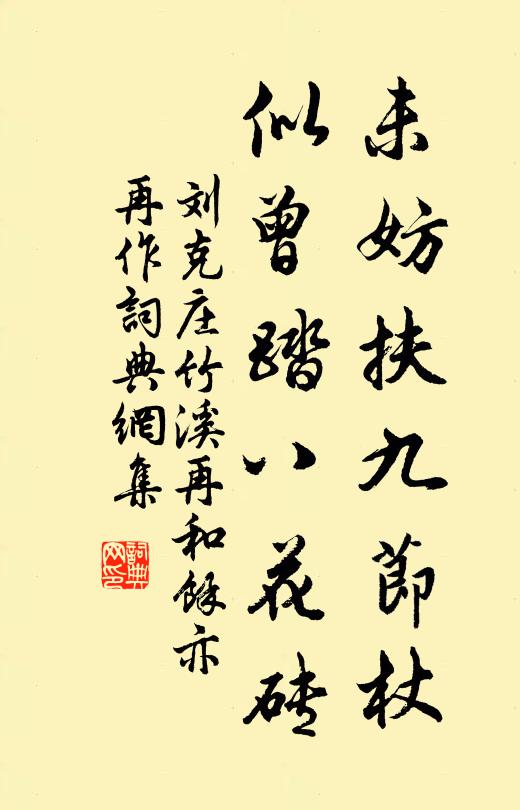 未妨扶九節杖
似曾踏八花砖
刘克庄竹溪再和餘亦
再作詞典網集
詞典網印